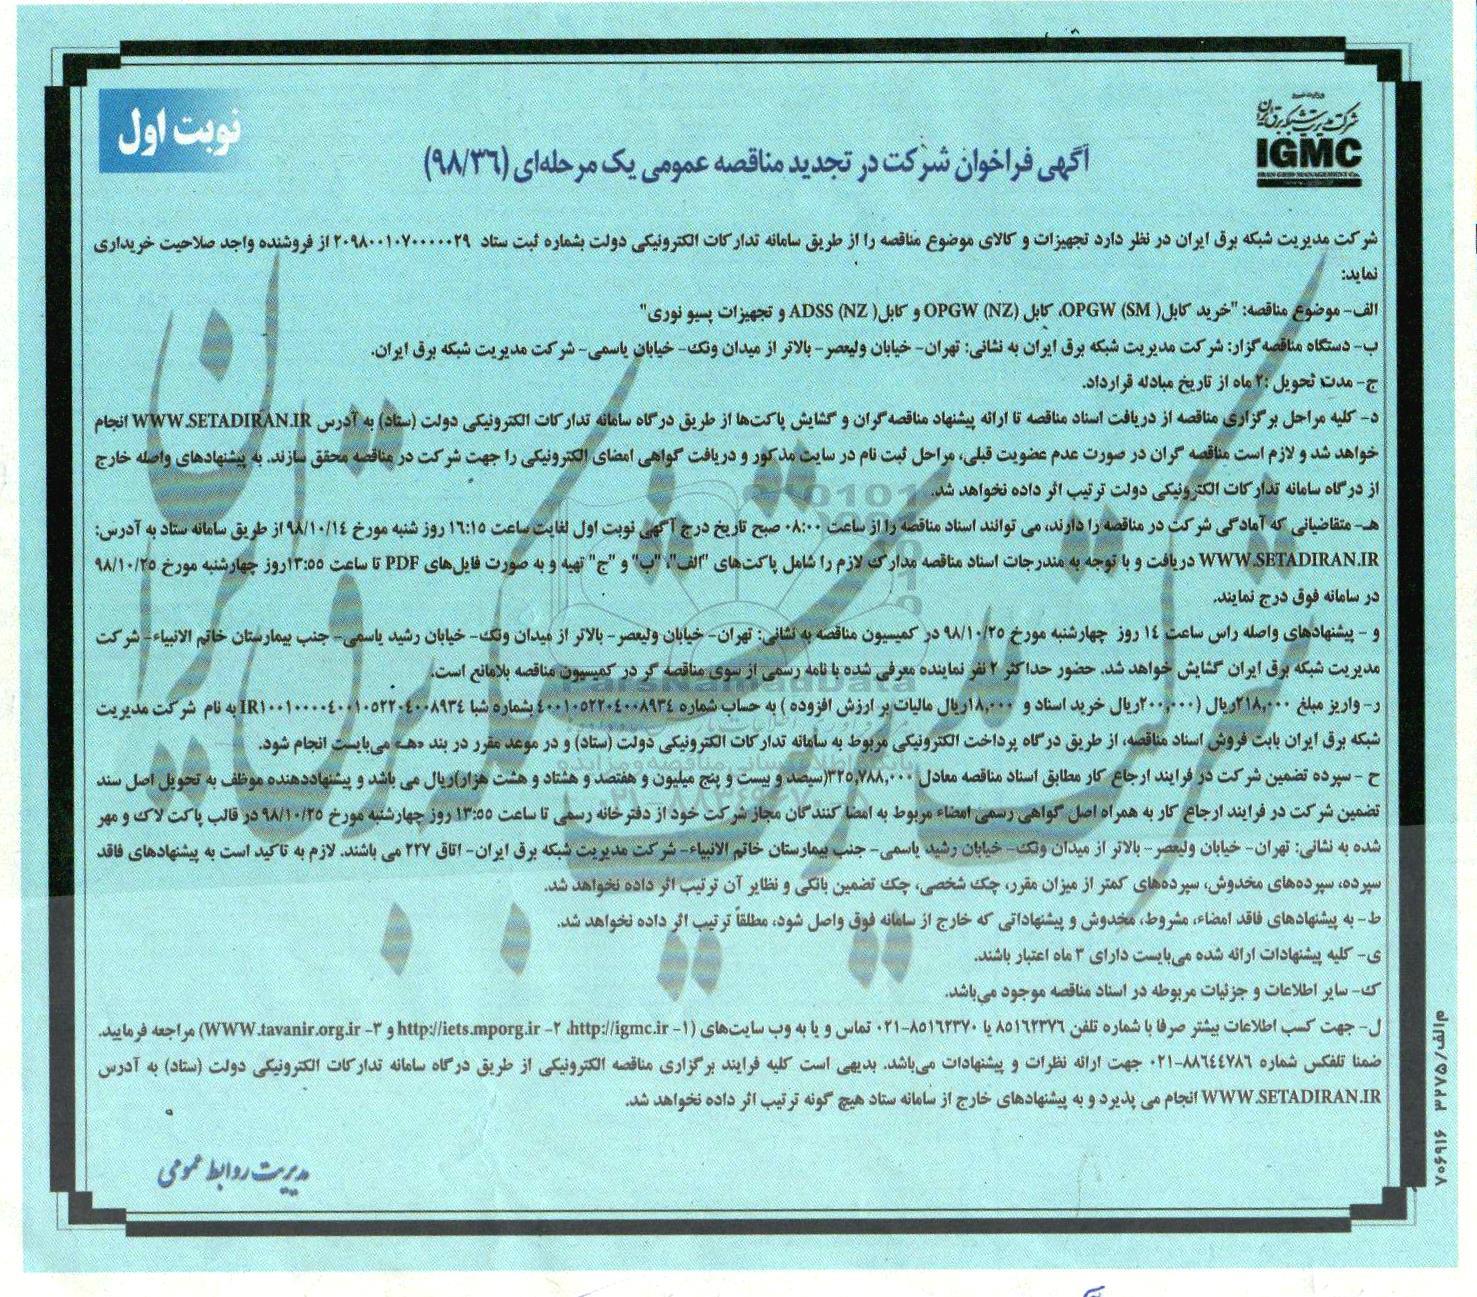 نوبت اول
شرکت مدیریت شبکه برق ایران
IGMC
IRAN GRID MANAGEMENT Co.
آگهی فراخوان شرکت در تجدید مناقصه عمومی یک مرحله‌ای (۹۸/۳۶)
شرکت مدیریت شبکه برق ایران در نظر دارد تجهیزات و کالای موضوع مناقصه را از طریق سامانه تدارکات الکترونیکی دولت بشماره ثبت ستاد ۲۰۹۸۰۰۱۰۷۰۰۰۰۰۲۹ از فروشنده واجد صلاحیت خریداری
نماید:
الف- موضوع مناقصه: "خرید کابل( OPGW (SM، کابل OPGW (NZ) و کابل( ADSS (NZ و تجهیزات پسیو نوری"
ب- دستگاه مناقصه‌گزار: شرکت مدیریت شبکه برق ایران به نشانی: تهران- خیابان ولیعصر- بالاتر از میدان ونک- خیابان یاسمی- شرکت مدیریت شبکه برق ایران.
ج- مدت تحویل :۲ ماه از تاریخ مبادله قرارداد.
د- کلیه مراحل برگزاری مناقصه از دریافت اسناد مناقصه تا ارائه پیشنهاد مناقصه‌گران و گشایش پاکت‌ها از طریق درگاه سامانه تدارکات الکترونیکی دولت (ستاد) به آدرس WWW.SETADIRAN.IR انجام
خواهد شد و لازم است مناقصه گران در صورت عدم عضویت قبلی، مراحل ثبت نام در سایت مذکور و دریافت گواهی امضای الکترونیکی را جهت شرکت در مناقصه محقق سازند. به پیشنهادهای واصله خارج
از درگاه سامانه تدارکات الکترونیکی دولت ترتیب اثر داده نخواهد شد.
هـ- متقاضیانی که آمادگی شرکت در مناقصه را دارند، می توانند اسناد مناقصه را از ساعت ۰۸:۰۰ صبح تاریخ درج آگهی نوبت اول لغایت ساعت ۱۶:۱۵ روز شنبه مورخ ۹۸/۱۰/۱۴ از طریق سامانه ستاد به آدرس:
WWW.SETADIRAN.IR دریافت و با توجه به مندرجات اسناد مناقصه مدارک لازم را شامل پاکت‌های "الف"، "ب" و "ج" تهیه و به صورت فایل‌های PDF تا ساعت ۱۳:۵۵روز چهارشنبه مورخ ۹۸/۱۰/۲۵
در سامانه فوق درج نمایند.
و - پیشنهادهای واصله راس ساعت ۱۴ روز چهارشنبه مورخ ۹۸/۱۰/۲۵ در کمیسیون مناقصه به نشانی: تهران- خیابان ولیعصر- بالاتر از میدان ونک- خیابان رشید یاسمی- جنب بیمارستان خاتم الانبیاء- شرکت
مدیریت شبکه برق ایران گشایش خواهد شد. حضور حداکثر ۲ نفر نماینده معرفی شده با نامه رسمی از سوی مناقصه گر در کمیسیون مناقصه بلامانع است.
ر- واریز مبلغ ۲۱۸,۰۰۰ریال (۲۰۰,۰۰۰ریال خرید اسناد و ۱۸,۰۰۰ریال مالیات بر ارزش افزوده ) به حساب شماره ۴۰۰۱۰۵۲۲۰۴۰۰۸۹۳۴ بشماره شبا IR۱۰۰۱۰۰۰۰۴۰۰۱۰۵۲۲۰۴۰۰۸۹۳۴ به نام شرکت مدیریت
شبکه برق ایران بابت فروش اسناد مناقصه، از طریق درگاه پرداخت الکترونیکی مربوط به سامانه تدارکات الکترونیکی دولت (ستاد) و در موعد مقرر در بند «هـ» می‌بایست انجام شود.
ح - سپرده تضمین شرکت در فرایند ارجاع کار مطابق اسناد مناقصه معادل ۳۲۵,۷۸۸,۰۰۰(سیصد و بیست و پنج میلیون و هفتصد و هشتاد و هشت هزار)ریال می باشد و پیشنهاددهنده موظف به تحویل اصل سند
تضمین شرکت در فرایند ارجاع کار به همراه اصل گواهی رسمی امضاء مربوط به امضا کنندگان مجاز شرکت خود از دفترخانه رسمی تا ساعت ۱۳:۵۵ روز چهارشنبه مورخ ۹۸/۱۰/۲۵ در قالب پاکت لاک و مهر
شده به نشانی: تهران- خیابان ولیعصر- بالاتر از میدان ونک- خیابان رشید یاسمی- جنب بیمارستان خاتم الانبیاء- شرکت مدیریت شبکه برق ایران- اتاق ۲۲۷ می باشند. لازم به تاکید است به پیشنهادهای فاقد
سپرده، سپرده‌های مخدوش، سپرده‌های کمتر از میزان مقرر، چک شخصی، چک تضمین بانکی و نظایر آن ترتیب اثر داده نخواهد شد.
ط- به پیشنهادهای فاقد امضاء، مشروط، مخدوش و پیشنهاداتی که خارج از سامانه فوق واصل شود، مطلقاً ترتیب اثر داده نخواهد شد.
ی- کلیه پیشنهادات ارائه شده می‌بایست دارای ۳ ماه اعتبار باشند.
ک- سایر اطلاعات و جزئیات مربوطه در اسناد مناقصه موجود می‌باشد.
ل- جهت کسب اطلاعات بیشتر صرفا با شماره تلفن ۸۵۱۶۲۳۷۶ یا ۸۵۱۶۲۳۷۰-۰۲۱ تماس و یا به وب سایت‌های (۱- http://igmc.ir، ۲- http://iets.mporg.ir و ۳- WWW.tavanir.org.ir) مراجعه فرمایید.
ضمنا تلفکس شماره ۸۸۶۴۴۷۸۶-۰۲۱ جهت ارائه نظرات و پیشنهادات می‌باشد. بدیهی است کلیه فرایند برگزاری مناقصه الکترونیکی از طریق درگاه سامانه تدارکات الکترونیکی دولت (ستاد) به آدرس
WWW.SETADIRAN.IR انجام می پذیرد و به پیشنهادهای خارج از سامانه ستاد هیچ گونه ترتیب اثر داده نخواهد شد.
مدیریت روابط عمومی
م‌الف/۳۲۷۵ ۷۰۶۹۱۶